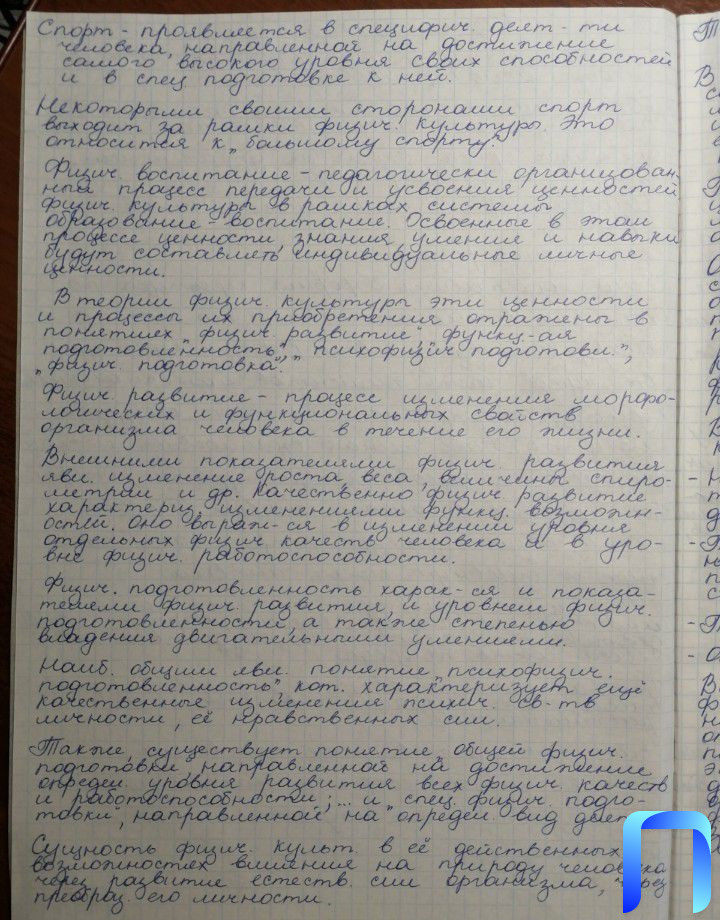 Спорт - проявляется в специфич. деят-ти
человека, направленной на достижение
самого высокого уровня своих способностей
и в спец. подготовке к ней.
Некоторыми своими сторонами спорт
выходит за рамки физич. культуры. Это
относится к „большому спорту".
Физич. воспитание - педагогически организован-
ный процесс передачи и усвоения ценностей
физич. культуры в рамках системы
образование - воспитание. Освоенные в этом
процессе ценности, знания, умение и навыки
будут составлять индивидуальные личные
ценности.
В теории физич. культуры эти ценности
и процессы их приобретения отражены в
понятиях „физич. развитие", „функц-ая
подготовленность", „психофизич. подготовл.",
„физич. подготовка".
Физич. развитие - процесс изменения морфо-
логических и функциональных свойств
организма человека в течение его жизни.
Внешними показателями физич. развития
явл. изменение роста, веса, величины спиро-
метрии и др. Качественно физич. развитие
характериз. изменениями функц. возможн-
остей. Оно выраж-ся в изменении уровня
отдельных физич. качеств человека и в уро-
вне физич. работоспособности.
Физич. подготовленность харак-ся и показа-
телями физич. развития, и уровнем физич.
подготовленности, а также степенью
владения двигательными умениями.
Наиб. общим явл. понятие „психофизич.
подготовленность", кот. характеризует ещё
качественные изменения психич. св-тв
личности, её нравственных сил.
Также, существует понятие „общей физич.
подготовки", направленной на достижение
опредеи. уровня развития всех физич. качеств
и работоспособности; ... и „спец. физич. подго-
товки", направленной на опредеи. вид
Сущность физич. культ. в её действенных
возможностях влияния на природу человека
через развитие естеств. сил организма, через
преобраз. его личности.